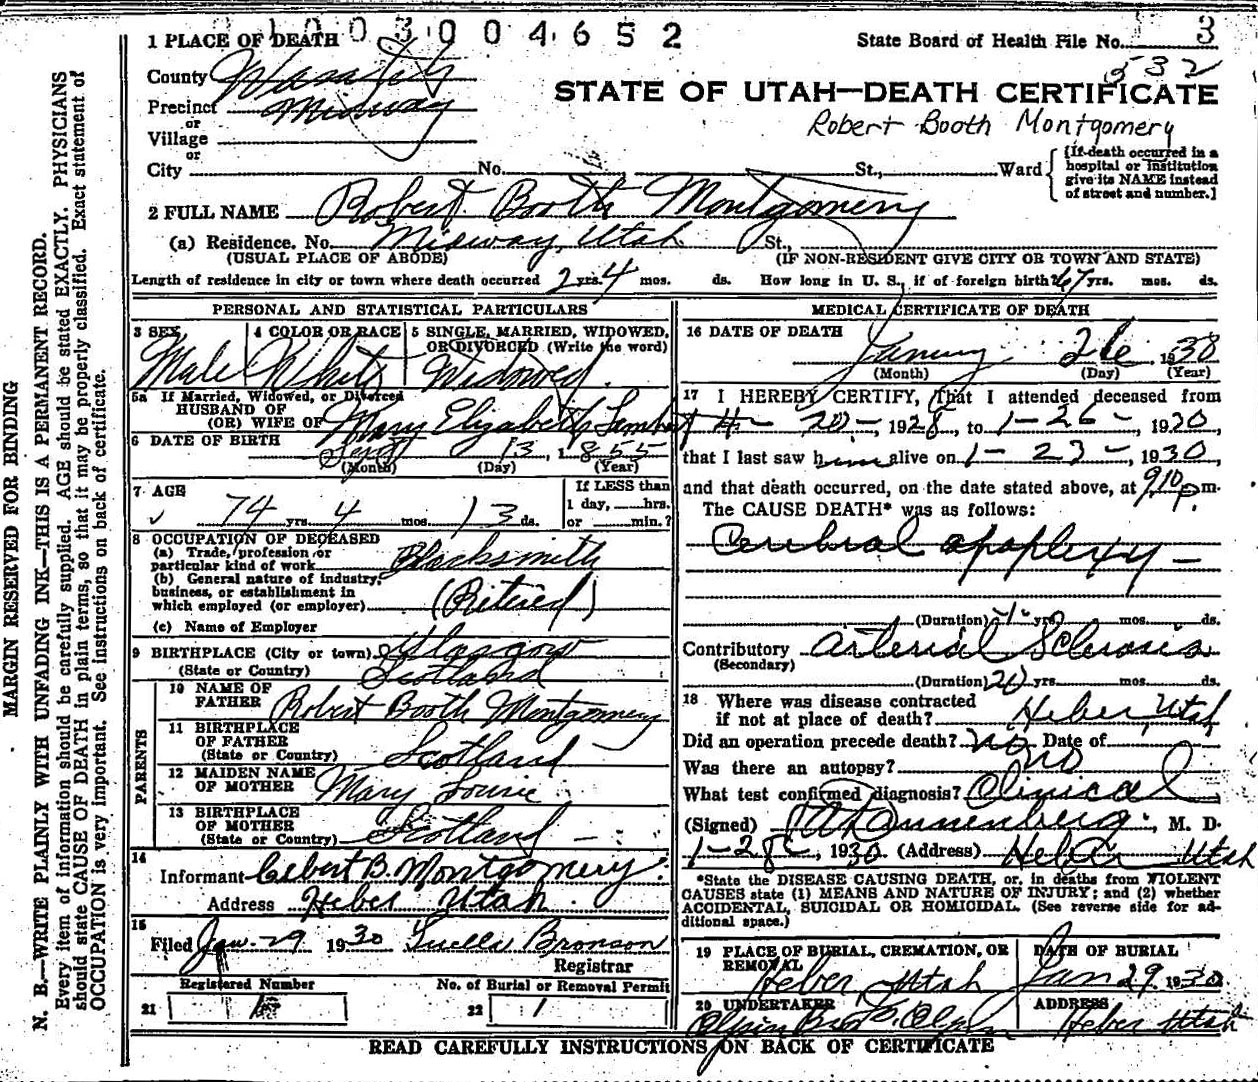 1003004652
State Board of Health File No. 3
532
1 PLACE OF DEATH
County Wasatch
STATE OF UTAH—DEATH CERTIFICATE
Precinct Midway
Robert Booth Montgomery
or
Village
or
City No. St., Ward
[If death occurred in a hospital or institution give its NAME instead of street and number.]
2 FULL NAME Robert Booth Montgomery
(a) Residence. No. Midway, Utah St.,
(USUAL PLACE OF ABODE) (IF NON-RESIDENT GIVE CITY OR TOWN AND STATE)
Length of residence in city or town where death occurred 2 yrs. 4 mos. ds. How long in U. S., if of foreign birth 67 yrs. mos. ds.
PERSONAL AND STATISTICAL PARTICULARS
3 SEX Male
4 COLOR OR RACE White
5 SINGLE, MARRIED, WIDOWED, OR DIVORCED (Write the word) Widowed.
5a If Married, Widowed, or Divorced
HUSBAND OF
(OR) WIFE OF Mary Elizabeth
6 DATE OF BIRTH Sept 13, 1855
(Month) (Day) (Year)
7 AGE
74 yrs. 4 mos. 13 ds.
If LESS than 1 day, hrs. or min.?
8 OCCUPATION OF DECEASED
(a) Trade, profession or particular kind of work Blacksmith
(b) General nature of industry, business, or establishment in which employed (or employer) (Retired)
(c) Name of Employer
9 BIRTHPLACE (City or town) Glasgow
(State or Country) Scotland
PARENTS
10 NAME OF FATHER Robert Booth Montgomery
11 BIRTHPLACE OF FATHER (State or Country) Scotland
12 MAIDEN NAME OF MOTHER Mary
13 BIRTHPLACE OF MOTHER (State or Country) Scotland -
14
Informant B. Montgomery.
Address Heber Utah.
15
Filed Jan-29 1930 Luella Bronson
Registrar
Registered Number No. of Burial or Removal Permit
21 1 22 1
MEDICAL CERTIFICATE OF DEATH
16 DATE OF DEATH
January 26 1930
(Month) (Day) (Year)
17 I HEREBY CERTIFY, That I attended deceased from
4- 20-, 1928, to 1-26-, 1930,
that I last saw him alive on 1-23-, 1930,
and that death occurred, on the date stated above, at 910 p m.
The CAUSE DEATH* was as follows:
Cerebral apoplexy -
(Duration) yrs. mos. ds.
Contributory Arterial Sclerosis
(Secondary)
(Duration) 20 yrs. mos. ds.
18 Where was disease contracted
if not at place of death? Heber, Utah
Did an operation precede death? No Date of
Was there an autopsy? no
What test confirmed diagnosis? Clinical
(Signed) Dannenberg, M. D.
1-28-, 1930 (Address) Heber Utah
*State the DISEASE CAUSING DEATH, or, in deaths from VIOLENT
CAUSES state (1) MEANS AND NATURE OF INJURY; and (2) whether
ACCIDENTAL, SUICIDAL OR HOMICIDAL. (See reverse side for ad-
ditional space.)
19 PLACE OF BURIAL, CREMATION, OR REMOVAL Heber Utah
DATE OF BURIAL Jan 29, 1930
20 UNDERTAKER Olpin Bros
ADDRESS Heber Utah
READ CAREFULLY INSTRUCTIONS ON BACK OF CERTIFICATE
MARGIN RESERVED FOR BINDING
N. B.—WRITE PLAINLY WITH UNFADING INK—THIS IS A PERMANENT RECORD.
Every item of information should be carefully supplied. AGE should be stated EXACTLY. PHYSICIANS
should state CAUSE OF DEATH in plain terms, so that it may be properly classified. Exact statement of
OCCUPATION is very important. See instructions on back of certificate.